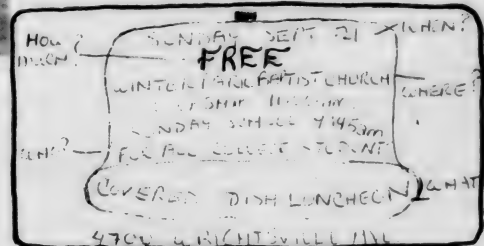 HOW MUCH?
SUNDAY SEPT 21
WHEN?
FREE
WINTER PARK BAPTIST CHURCH
WHERE?
SUNDAY SCHOOL 9:45am
WHO?
FOR ALL COLLEGE STUDENT
COVERED DISH LUNCHEON
WHAT
4700 WRIGHTSVILLE AVE